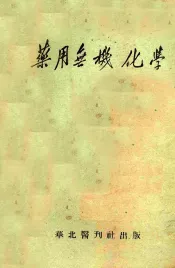 藥用無機化學
華北醫刊社出版